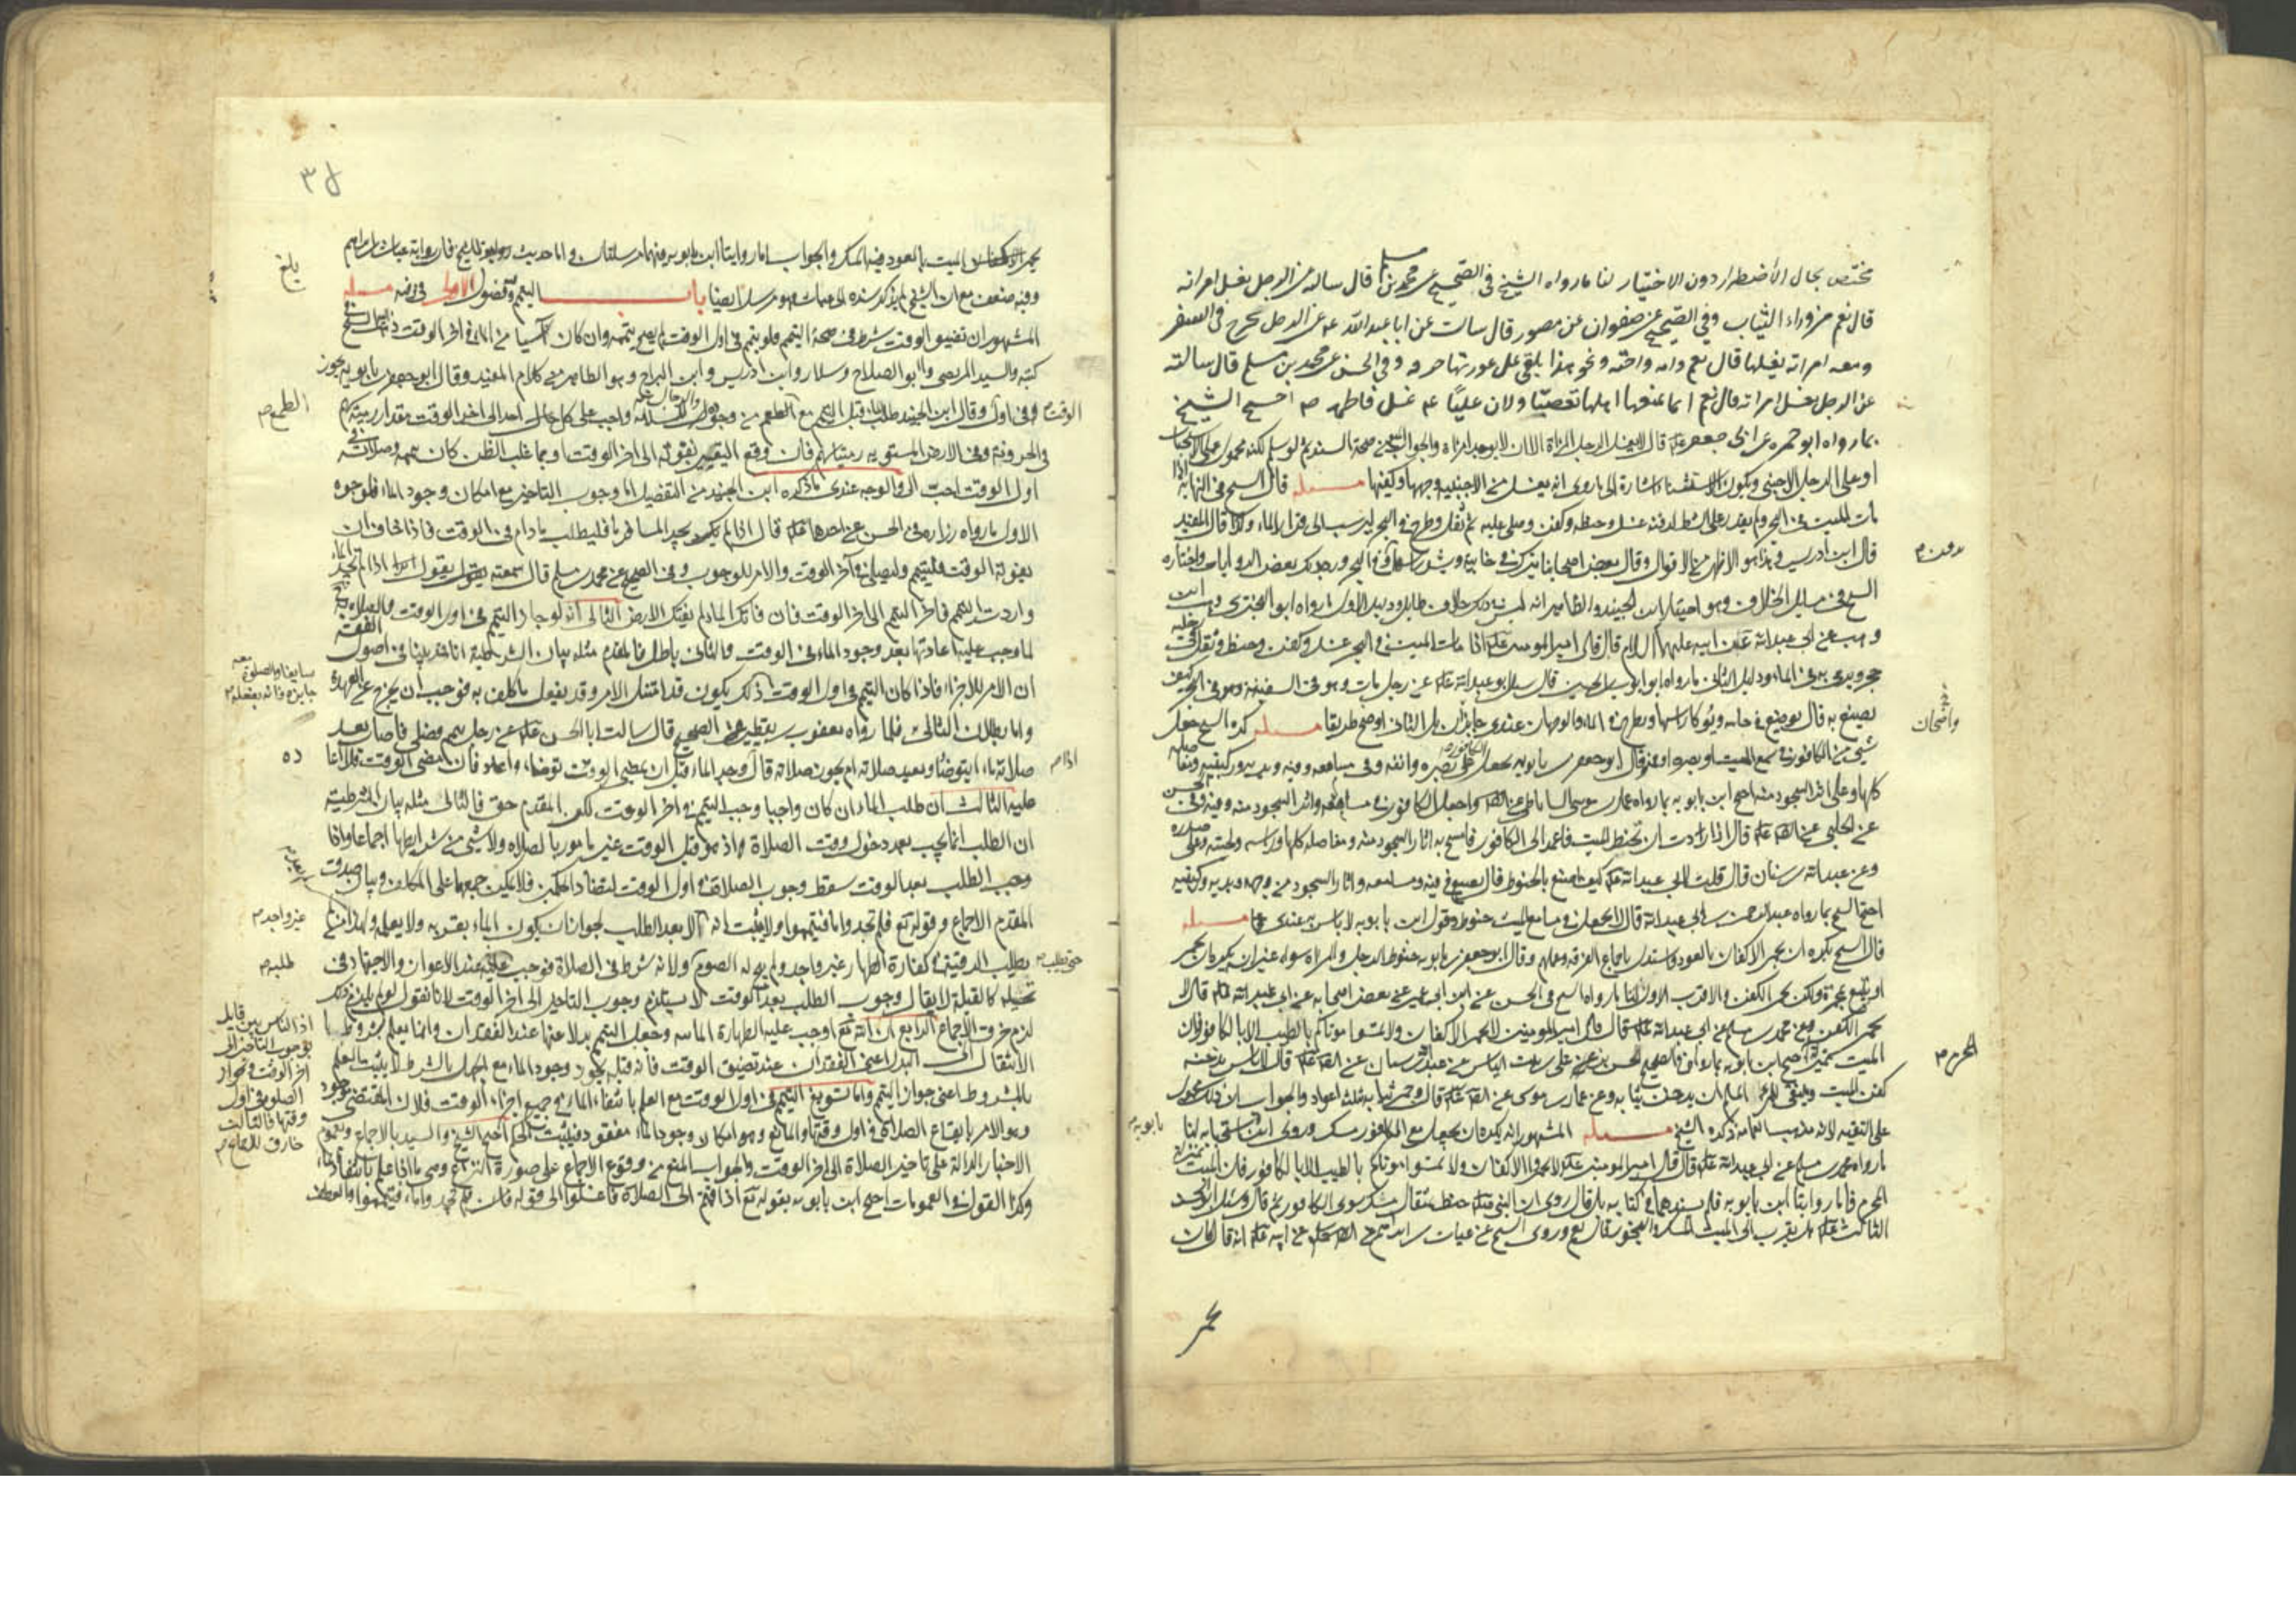 مختص بحال الأضطرار دون الاختيار لنا ما رواه الشيخ في الصحيح عن محمد بن مسلم قال سالته عن الرجل يغسل امراته
قال نعم من وراء الثياب وفي الصحيح عن صفوان عن منصور قال سالت عن ابا عبد الله عه عن الرجل يخرج في السفر
ومعه امراته يغسلها قال نعم وامه واخته ونحو هذا يلقى على عورتها خرقة وفي الحسن عن محمد بن مسلم قال سالته
عن الرجل يغسل امراته قال نعم انما يمنعها اهلها تعصبّا ولان عليًا عه غسل فاطمه ص احتج الشيخ
بما رواه ابو حمزه عن ابي جعفر عله قال لا يغسل الرجل المراة الا ان لا يوجد امراة والجواب صحة السند لو سلم لكنه محمول على الاستحباب
او على الرجل الاجنبي ويكون الاستثناء اشارة الى ما روى انه يغسل من الاجنبية وجهها وكفيها مسئله قال الشيخ في النهاية اذا
مات الميت في البحر ولم يقدر على الشط لدفنه غسل وحنطه وكفن وصلى عليه ثم ثقل وطرح في البحر ليرسب الى قرار الماء وكذا قال المفيد
قال ابن ادريس وهذا هو الاظهر من الاقوال وقال بعض اصحابنا يترك في خابية ويشد راسها وترمى في البحر ورد بذلك بعض الروايات واختاره
الشيخ في مسائل الخلاف وهو اختيار ابن الجنيد والظاهر انه ليس بذلك خلاف طايل ودليل الاول ما رواه ابو البختري وهب ابن
وهب عن ابي عبد الله عن ابيه عليهما السلام قال قال امير المومنين عله اذا مات الميت في البحر غسل وكفن وحنط وثقل في رجليه
حجر ويرمى به في الماء ودليل الثاني ما رواه ابو ايوب بن الحسين قال سئل ابو عبد الله عله عن رجل مات وهو في السفينة وهو في البحر كيف
يصنع به قال يوضع في خابية ويوكا راسها ويطرح في الماء والوجهان عندي جايزان بل الثاني اوضح طريقا مسئله كره الشيخ جعل
شيئ من الكافور في سمع الميت او بصره او فيه وقال ابو جعفر بن بابويه يجعل الكافور على بصره وانفه وفي مسامعه وفيه ويديه وركبتيه ومفاصله
كلها وعلى اثر السجود منه احتج ابن بابويه بما رواه عمار بن موسى الساباطي عن الصه واجعل الكافور في مسامعه واثر السجود منه وفيه وفي الحسن
عن الحلبي عن الصه عله قال اذا اردت ان تحنط الميت فاعمد الى الكافور فامسح به اثار السجود منه ومفاصله كلها وراسه ولحيته وعلى صدره
وعن عبد الله بن سنان قال قلت لابي عبد الله عله كيف اصنع بالحنوط قال يضع في فيه ومسامعه واثار السجود من وجهه ويديه وركبتيه
احتج الشيخ بما رواه عبد الرحمن عن ابي عبد الله قال لا يجعل في مسامع الميت حنوطا وقول ابن بابويه لا باس به عندي مسئله
قال الشيخ يكره ان يجمر الاكفان بالعود واستدل باجماع الفرقة وعملهم وقال ابو جعفر بن بابويه حنوط الرجل والمراة سواء غير انه يكره ان يجمر
او يتبع بمجمرة ولكن يجمر الكفن والاقرب الاول لنا ما رواه الشيخ في الحسن عن ابن ابي عمير عن بعض اصحابه عن ابي عبد الله عله قال لا
يجمر الكفن وعن محمد بن مسلم عن ابي عبد الله عله قال قال امير المومنين لا تجمروا الاكفان ولا تمسوا موتاكم بالطيب الا بالكافور فان
الميت بمنزلة احتج ابن بابويه بما رواه في الصحيح الحسن بن علي بن بنت الياس عن عبد الله بن سنان عن الصه عله قال لا باس بدخنه
كفن الميت وينبغي للمرء المسلم ان يدخن ثيابه وعن عمار بن موسى عن الصه عله قال وجمر ثيابه بثلث اعواد والجواب ان ذلك محمول
على التقية لانه مذهب العامة ذكره الشيخ مسئله المشهور انه يكره ان يجعل مع الكافور مسك وروى استحبابه لنا
ما رواه محمد بن مسلم عن ابي عبد الله عله قال قال امير المومنين عله لا تجمروا الاكفان ولا تمسوا موتاكم بالطيب الا بالكافور فان الميت بمنزلة
المحرم فاما روايتا ابن بابويه فلم يسندهما في كتابه بل قال روى ان النبي صله حنط بمثقال مسك سوى الكافور ثم قال وسئل ابو الحسن
الثالث عله هل يقرب الى الميت المسك والبخور قال نعم وروى الشيخ عن غياث بن ابراهيم عن الصه عله عن ابيه عله انه قال كان
يجمر
مدون م
واضحان
المحرم م
بابويه م
يجمر الميت بالعود فيه المسك والجواب اما روايتا ابن بابويه فهما مرسلتان واما حديث الشيخ فان رواية غياث بن ابراهيم
وفيه ضعف مع ان الشيخ لم يذكر سنده الى غياث فهو مرسل ايضا باب التيمم وفيه فصول الاول في وقته مسئله
المشهور ان تضيق الوقت شرط في صحة التيمم فلو تيمم في اول الوقت لم يصح تيممه وان كان آيسا من الماء في اخر الوقت ذكره الشيخ في
كتبه والسيد المرتضى وابو الصلاح وسلار وابن ادريس وابن البراج وهو الظاهر من كلام المفيد وقال ابو جعفر بن بابويه يجوز
في اوله وقال ابن الجنيد طلب الماء قبل التيمم مع الطمع من وجوده واجب على كل حال احد الى اخر الوقت مقدار رمية سهم
في الحزونة وفي الارض المستوية رميتا سهم فان وقع اليقين بفوته الى اخر الوقت او بما غلب الظن كان تيممه وصلاته في
اول الوقت احب الي والوجه عندي ما ذكره ابن الجنيد من التفصيل اما وجوب التاخير مع امكان وجود الماء فلوجوه
الاول ما رواه زراره في الحسن عن احدهما عله قال اذا لم يجد المسافر ماء فليطلب ما دام في الوقت فاذا خاف ان
يفوته الوقت فليتيمم وليصل في آخر الوقت والامر للوجوب وفي الصحيح عن محمد بن مسلم قال سمعته يقول اذا لم تجد ماء
واردت التيمم فاخر التيمم الى اخر الوقت فان فاتك الماء لم تفتك الارض الثاني انه لو جاز التيمم في اول الوقت والصلاة به
لما وجب عليه اعادتها بعد وجود الماء في الوقت والتالي باطل فالمقدم مثله بيان الشرطية انا قد بينا في اصول الفقه
ان الامر للاجزاء فاذا كان التيمم في اول الوقت ذلك يكون قد امتثل الامر وقد يفعل ما كلف به فوجب ان يخرج عن العهدة
واما بطلان التالي فلما رواه يعقوب بن يقطين في الصحيح قال سالت ابا الحسن عله عن رجل تيمم فصلى فاصاب بعد
صلاته ماء ايتوضا ويعيد صلاته ام يجوز صلاته قال وجد الماء قبل ان يمضي الوقت توضا واعاد فان مضى الوقت فلا اعادة
عليه الثالث ان طلب الماء ان كان واجبا وجب التيمم في اخر الوقت لكن المقدم حق فالتالي مثله بيان الشرطية
ان الطلب انما يجب بعد دخول وقت الصلاة اذ هو قبل الوقت غير مامور بالصلاه ولا بشئ من شرايطها اجماعا واذا
وجب الطلب بعد الوقت سقط وجوب الصلاة في اول الوقت لتضاد الحكمين فلا يمكن جمعهما على المكلف وبيان صدق
المقدم الاجماع وقوله تع فلم تجدوا ماء فتيمموا ولا يثبت انه الا بعد الطلب لجواز ان يكون الماء بقربه ولا يعلمه ولهذا لم
يطلب الرقبة في كفارة الظهار غير واجد ولم يجز له الصوم ولانه شرط في الصلاة فوجب عليه عند الاعوان والاجتهاد في
تحصيله كالقبلة لا يقال وجوب الطلب بعد الوقت لا يستلزم وجوب التاخير الى اخر الوقت لانا نقول لو لم يلزم ذلك
لزم خرق الاجماع الرابع ان الله تع اوجب عليه الطهارة المائيه وجعل التيمم بدلا عنها عند الفقدان وانما يعلم شروط
الانتقال الى البدل اعني الفقدان عند تضيق الوقت فانه قبله يجوز وجود الماء ومع الجهل بالشرط لا يثبت العلم
بالمشروط اعني جواز التيمم واما تسويغ التيمم في اول الوقت مع العلم بانتفاء الماء في جميع اجزاء الوقت فلان المقتضي موجود
وهو الامر بايقاع الصلاة في اول وقتها والمانع وهو امكان وجود الماء مفقود فيثبت الحكم احتج الشيخ والسيد بالاجماع وبعموم
الاخبار الدالة على تاخير الصلاة الى اخر الوقت والجواب المنع من وقوع الاجماع على صورة النزاع وهي ما اذا علم بانتفاء الماء
وكذا القول في العمومات احتج ابن بابويه بقوله تع اذا قمتم الى الصلاة فاغسلوا الى قوله فان لم تجدوا ماء فتيمموا والعطف
بلغ
الطمع م
سايغا والصلوة معه
جايزه فانه يفعله م
اذا م
غير واجد م
طلبه م
حتى يطلب م
اذا الناس بين قايل
بوجوب التاخير الى
اخر الوقت وبجواز
الصلوة في اول
وقتها فالثالث
خارق للاجماع م